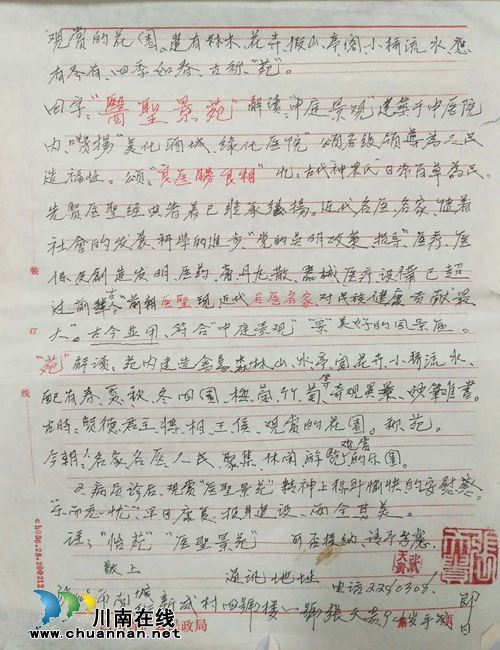 观赏的花园。造有林木、花卉、假山、亭阁、小桥流水、应
有尽有、四季如春、古称"苑"。
四字:"醫聖景苑"解读:"中庭景观"建築于中医院
内,"赞扬"美化酒城、绿化医院"颂各级领导為人民
造福祉。颂:"良医勝良相"比,古代神农氏"日尝百草為民。
先贤医聖经典著着已继承發揚。近代名医、名家、随着
社會的发展、科学的進步"党的英明政策、指导"医疗、医
保及創造发明、医药、膏丹丸散、器械、医疗设備已超
过前辈。"前朝医聖现近代名医名家对民族健康贡献最
大"。古今並用、符合"中庭景观""景"美好的园景區。
"苑"解读、苑内建造禽鸟、森林、山、水、亭阁花卉、小桥流水、
配有春、夏、秋、冬四園、梅、蘭、竹、菊等奇观異景、妙筆难書。
古時:贤德君王、将、相、王侯、观赏的花園。称苑。
今朝:名家名医、人民、聚集、休闲游览观赏的乐園。
又病员诊后、观赏"医聖景苑"精神上得到愉快的安慰感。
乐而忘忧"、早日康复、投身建设、两全其美。
"怡苑""医聖景苑"可否採纳、请予考慮。
敬上
通讯地址 电话2280308
市南城新成村四號楼一號張天贵 岁手颂
即日
装
订
线
ch036.28.200212
川南在线
www.chuannan.net
政局